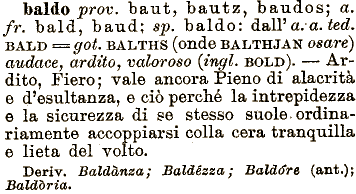 baldo prov. baut, bautz, baudos; a.
fr. bald, baud; sp. baldo: dall' a. a. ted.
BALD = got. BALTHS (onde BALTHJAN osare)
audace, ardito, valoroso (ingl. BOLD). — Ar-
dito, Fiero; vale ancora Pieno di alacrità
e d'esultanza, e ciò perché la intrepidezza
e la sicurezza di se stesso suole ordina-
riamente accoppiarsi colla cera tranquilla
e lieta del volto.
Deriv. Baldànza; Baldézza; Baldóre (ant.);
Baldòria.